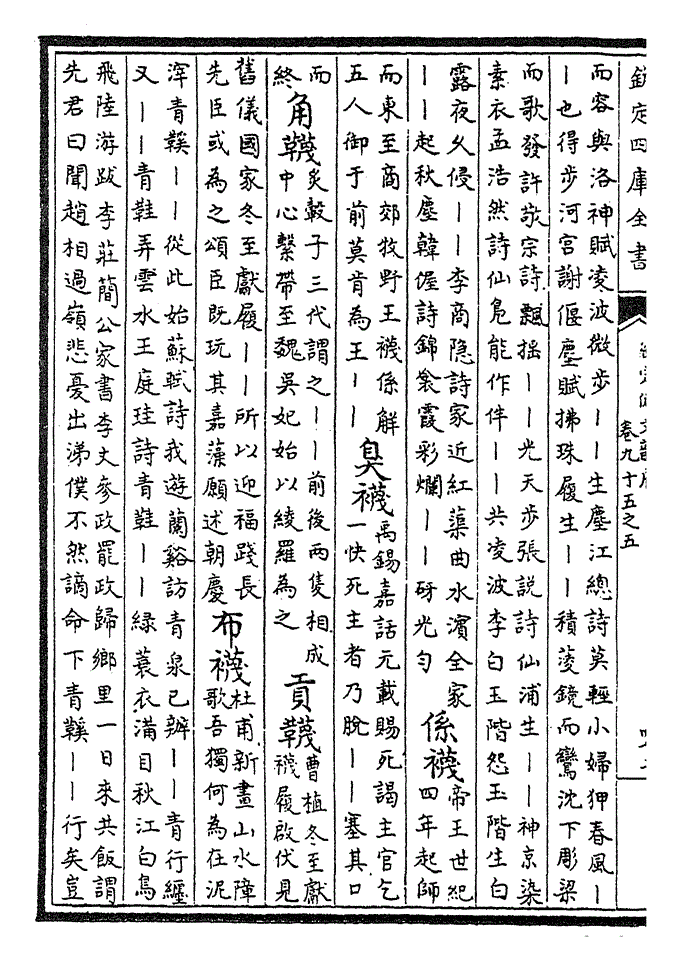 欽定四庫全書
卷九十五之五
而容與洛神賦凌波微步丨丨生塵江總詩莫輕小婦狎春風丨
丨也得步河宮謝偃塵賦拂珠履生丨丨積菱鏡而鸞沈下彫梁
而歌發許敬宗詩飄揺丨丨光天步張説詩仙浦生丨丨神京染
素衣孟浩然詩仙鳬能作伴丨丨共凌波李白玉階怨玉階生白
露夜乆侵丨丨李商隠詩家近紅蕖曲水濱全家
丨丨起秋塵韓偓詩錦衾霞彩爛丨丨砑光匀
係襪
帝王世紀
四年起師
而東至商郊牧野王襪係解
五人御于前莫肯為王丨丨
臭襪
禹錫嘉話元載賜死謁主官乞
一快死主者乃脱丨丨塞其口
而
終
角韈
炙轂子三代謂之丨丨前後兩隻相成
中心繫帶至魏吳妃始以綾羅為之
貢韈
曹植冬至獻
襪履啟伏見
舊儀國家冬至獻履丨丨所以迎福踐長
先臣或為之頌臣既玩其嘉藻願述朝慶
布襪
杜甫新畫山水障
歌吾獨何為在泥
滓青鞵丨丨從此始蘇軾詩我遊蘭谿訪青泉已辦丨丨青行纒
又丨丨青鞋弄雲水王庭珪詩青鞋丨丨緑蓑衣滿目秋江白鳥
飛陸游跋李莊簡公家書李丈參政罷政歸鄉里一日來共飯謂
先君曰聞趙相過嶺悲憂出涕僕不然謫命下青鞵丨丨行矣豈